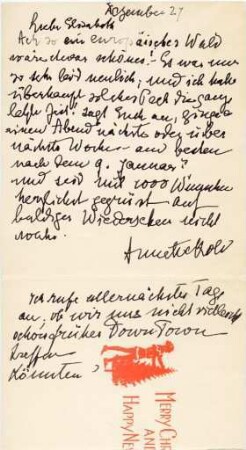 Dezember 27
Liebe Elisabeth
Ach so ein europäisches Wald
wäre etwas schönes! Es war uns
so sehr leid neulich, und ich habe
überhaupt solches Pech die ganze
letzte Zeit! sagt Euch an,
einen Abend nächste oder über
nächste Woche am besten
nach dem 9. Januar?
und seid mit 1000 Wünschen
herzlichst gegrüsst auf
baldiges Wiedersehen nicht
wahr.
Annette Kolb
Ich rufe allernächste Tage
an, ob wir uns nicht vielleicht
schon früher Down Town
treffen
könnten?
MERRY CHR
AND
HAPPY NEW